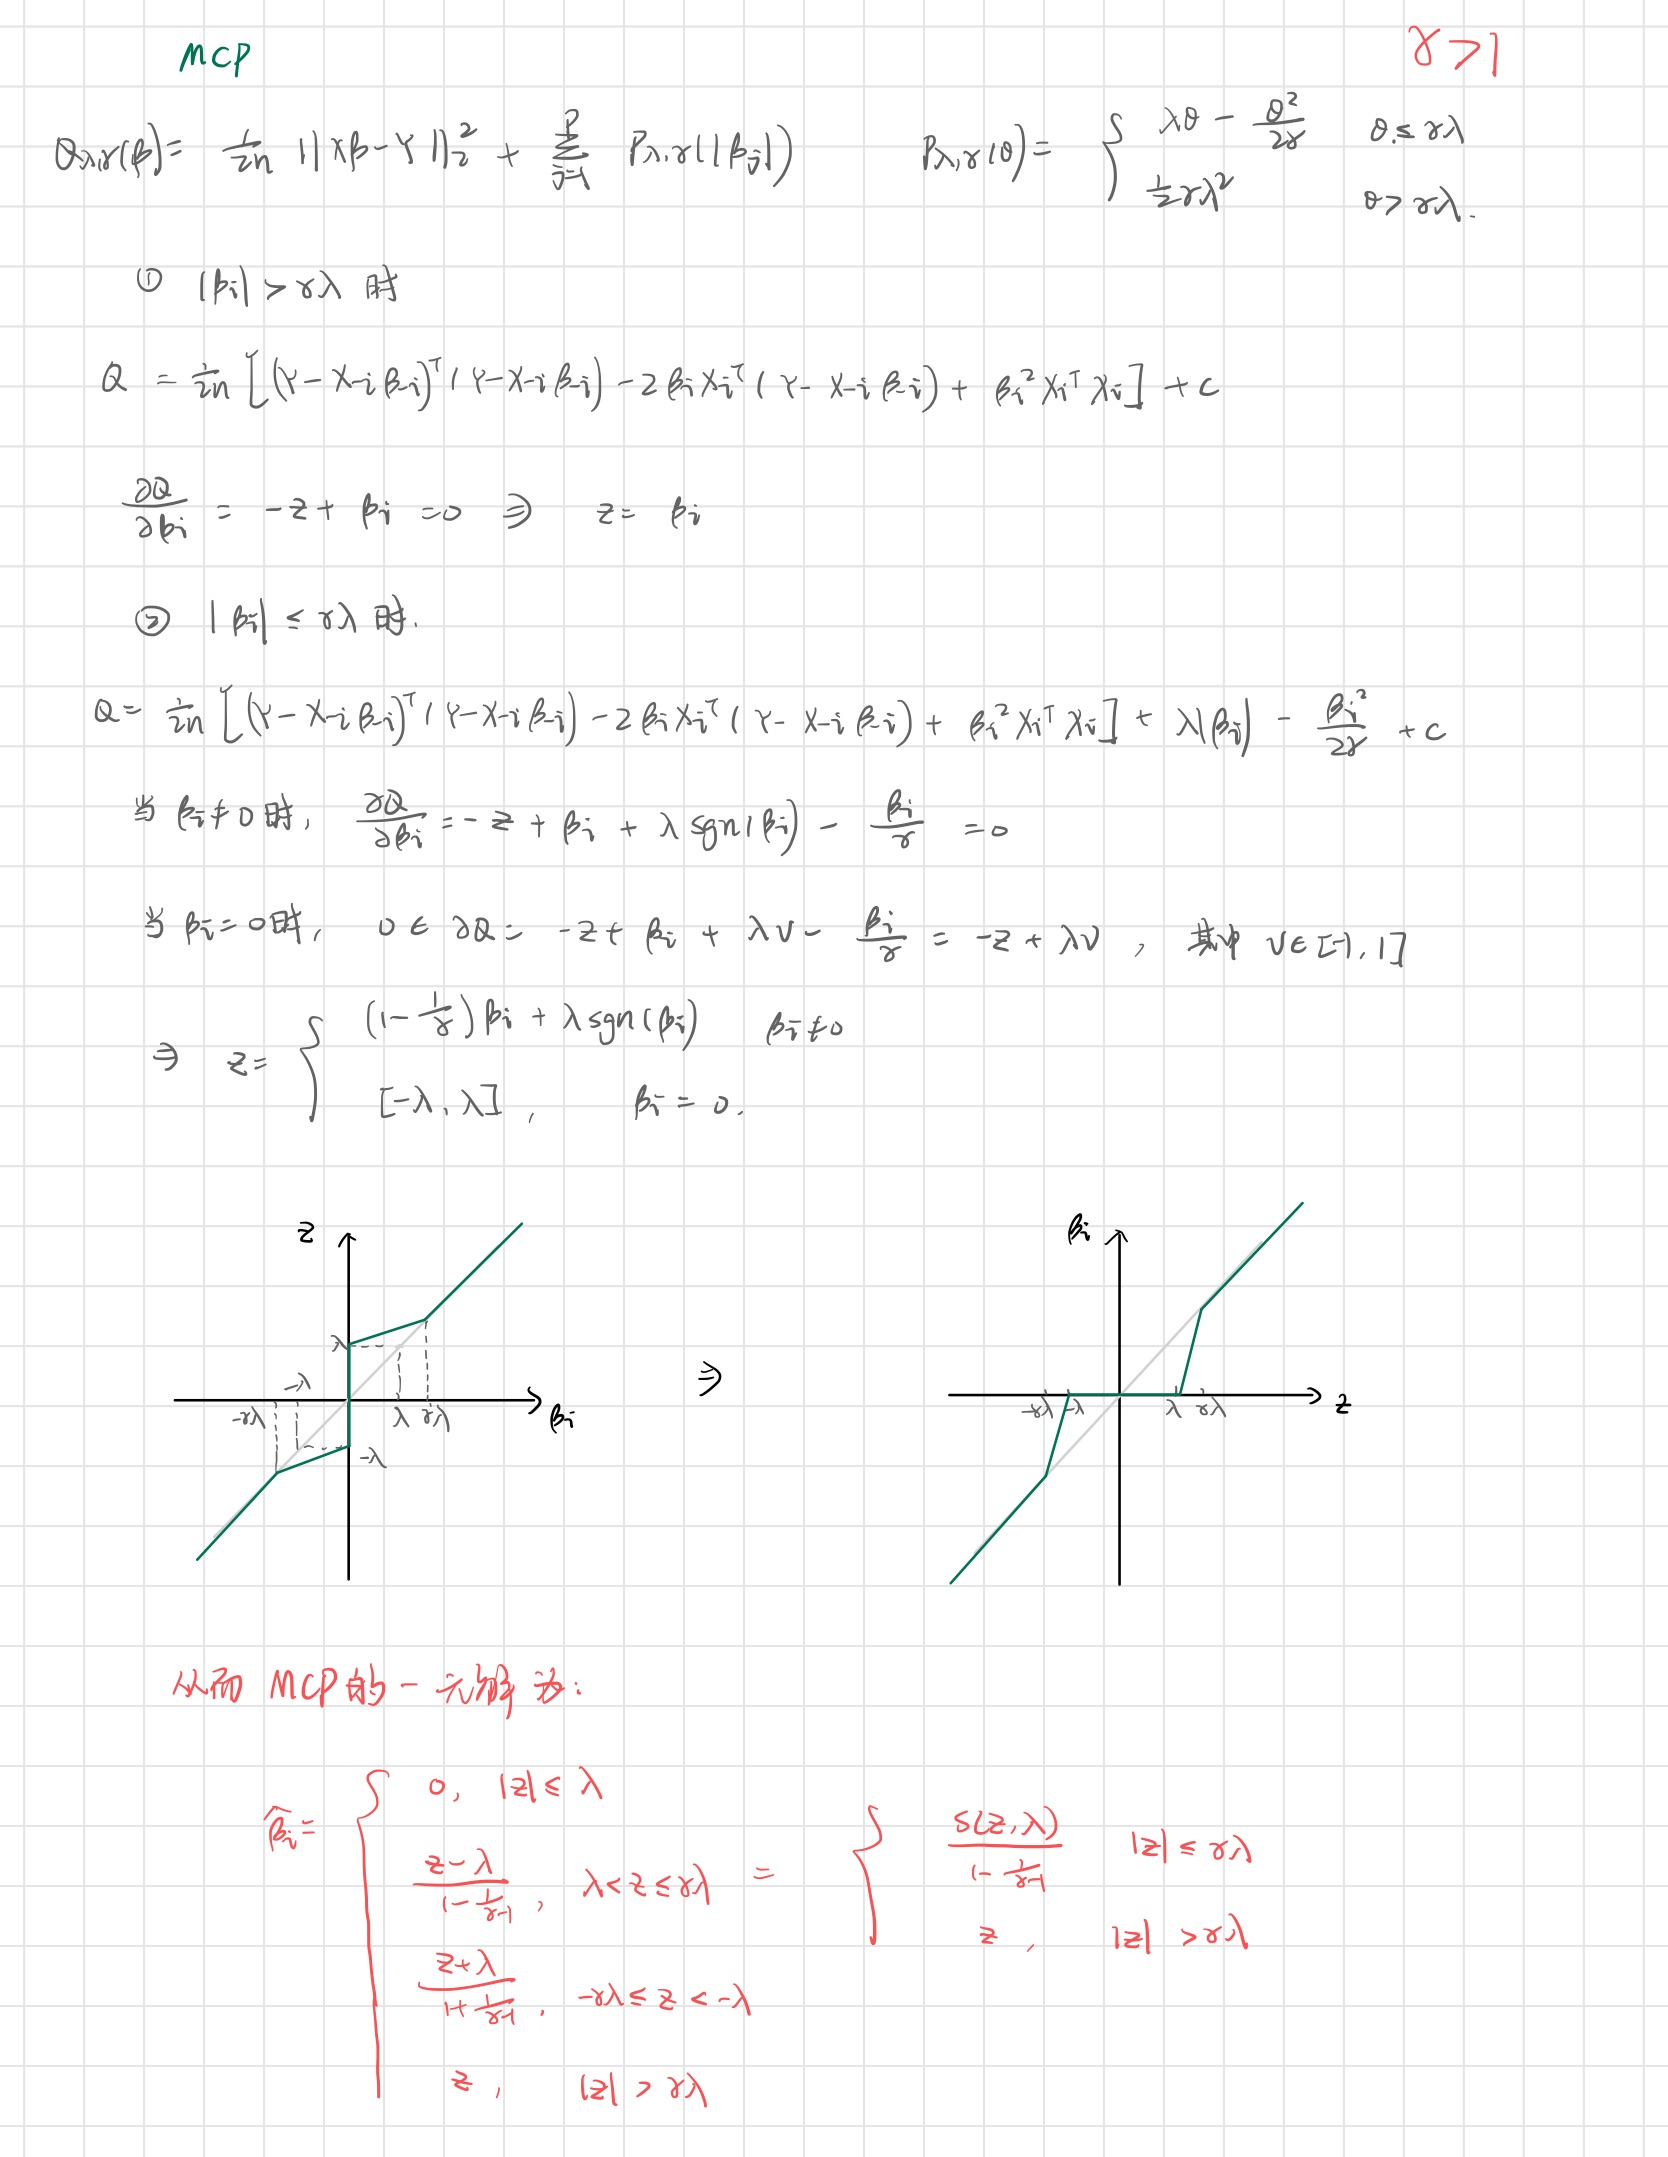 MCP γ>1
Q_{λ,γ}(β) = 1/2n ||Xβ-Y||₂² + Σ_{j=1}^{p} P_{λ,γ}(|βj|) P_{λ,γ}(θ) = { λθ - θ²/2γ θ ≤ γλ
½γλ² θ > γλ.
① |βi| > γλ 时
Q = 1/2n [(Y-X₋iβ₋i)ᵀ(Y-X₋iβ₋i) - 2βiXiᵀ(Y-X₋iβ₋i) + βi²XiᵀXi] + c
∂Q/∂βi = -z + βi = 0 ⇒ z = βi
② |βi| ≤ γλ 时.
Q = 1/2n [(Y-X₋iβ₋i)ᵀ(Y-X₋iβ₋i) - 2βiXiᵀ(Y-X₋iβ₋i) + βi²XiᵀXi] + λ|βi| - βi²/2γ + c
当 βi≠0 时, ∂Q/∂βi = -z + βi + λ sgn(βi) - βi/γ = 0
当 βi=0 时, 0 ∈ ∂Q = -z + βi + λv - βi/γ = -z + λv , 其中 v∈[-1,1]
⇒ z = { (1-1/γ)βi + λsgn(βi) βi≠0
[-λ, λ], βi = 0.
z βi
λ
-λ
-γλ λ γλ βi
-λ
⇒
-γλ -λ λ γλ z
从而 MCP的一元解为:
β̂i = { 0, |z| ≤ λ
(z-λ)/(1-1/(γ-1)), λ<z≤γλ = { S(z,λ)/(1-1/(γ-1)) |z| ≤ γλ
z, |z| > γλ
(z+λ)/(1+1/(γ-1)), -γλ ≤ z < -λ
z, |z| > γλ